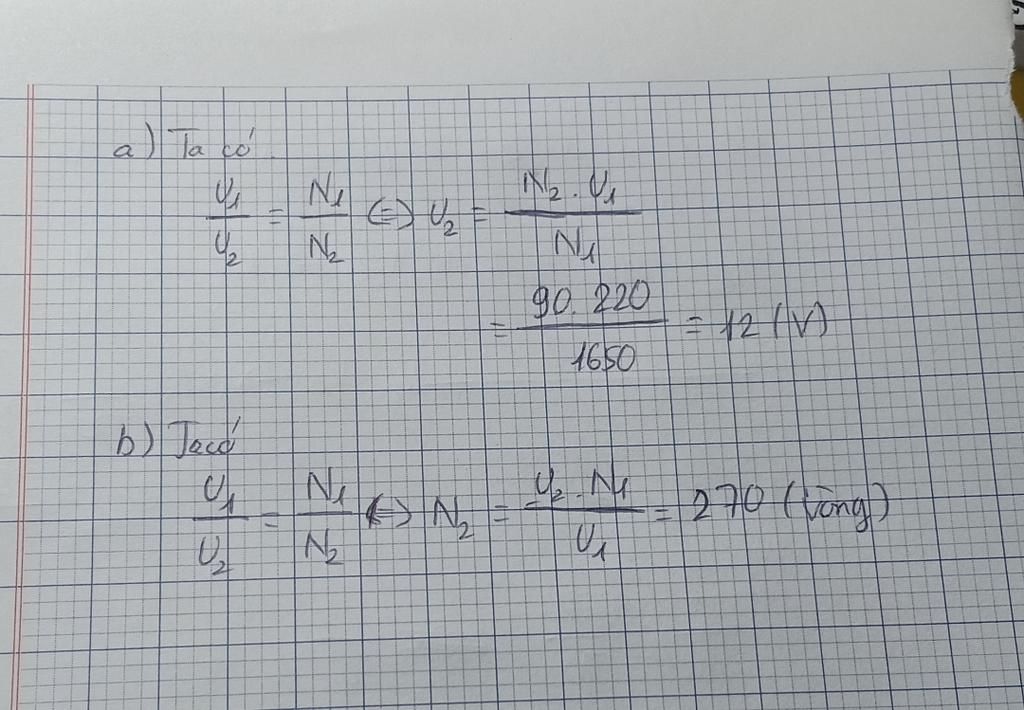 a) Ta có
U₁/U₂ = N₁/N₂ ⇔ U₂ = N₂.U₁/N₁
= 90.220/1650 = 12 (V)
b) Ta có
U₁/U₂ = N₁/N₂ ⇔ N₂ = U₂.N₁/U₁ = 270 (vòng)